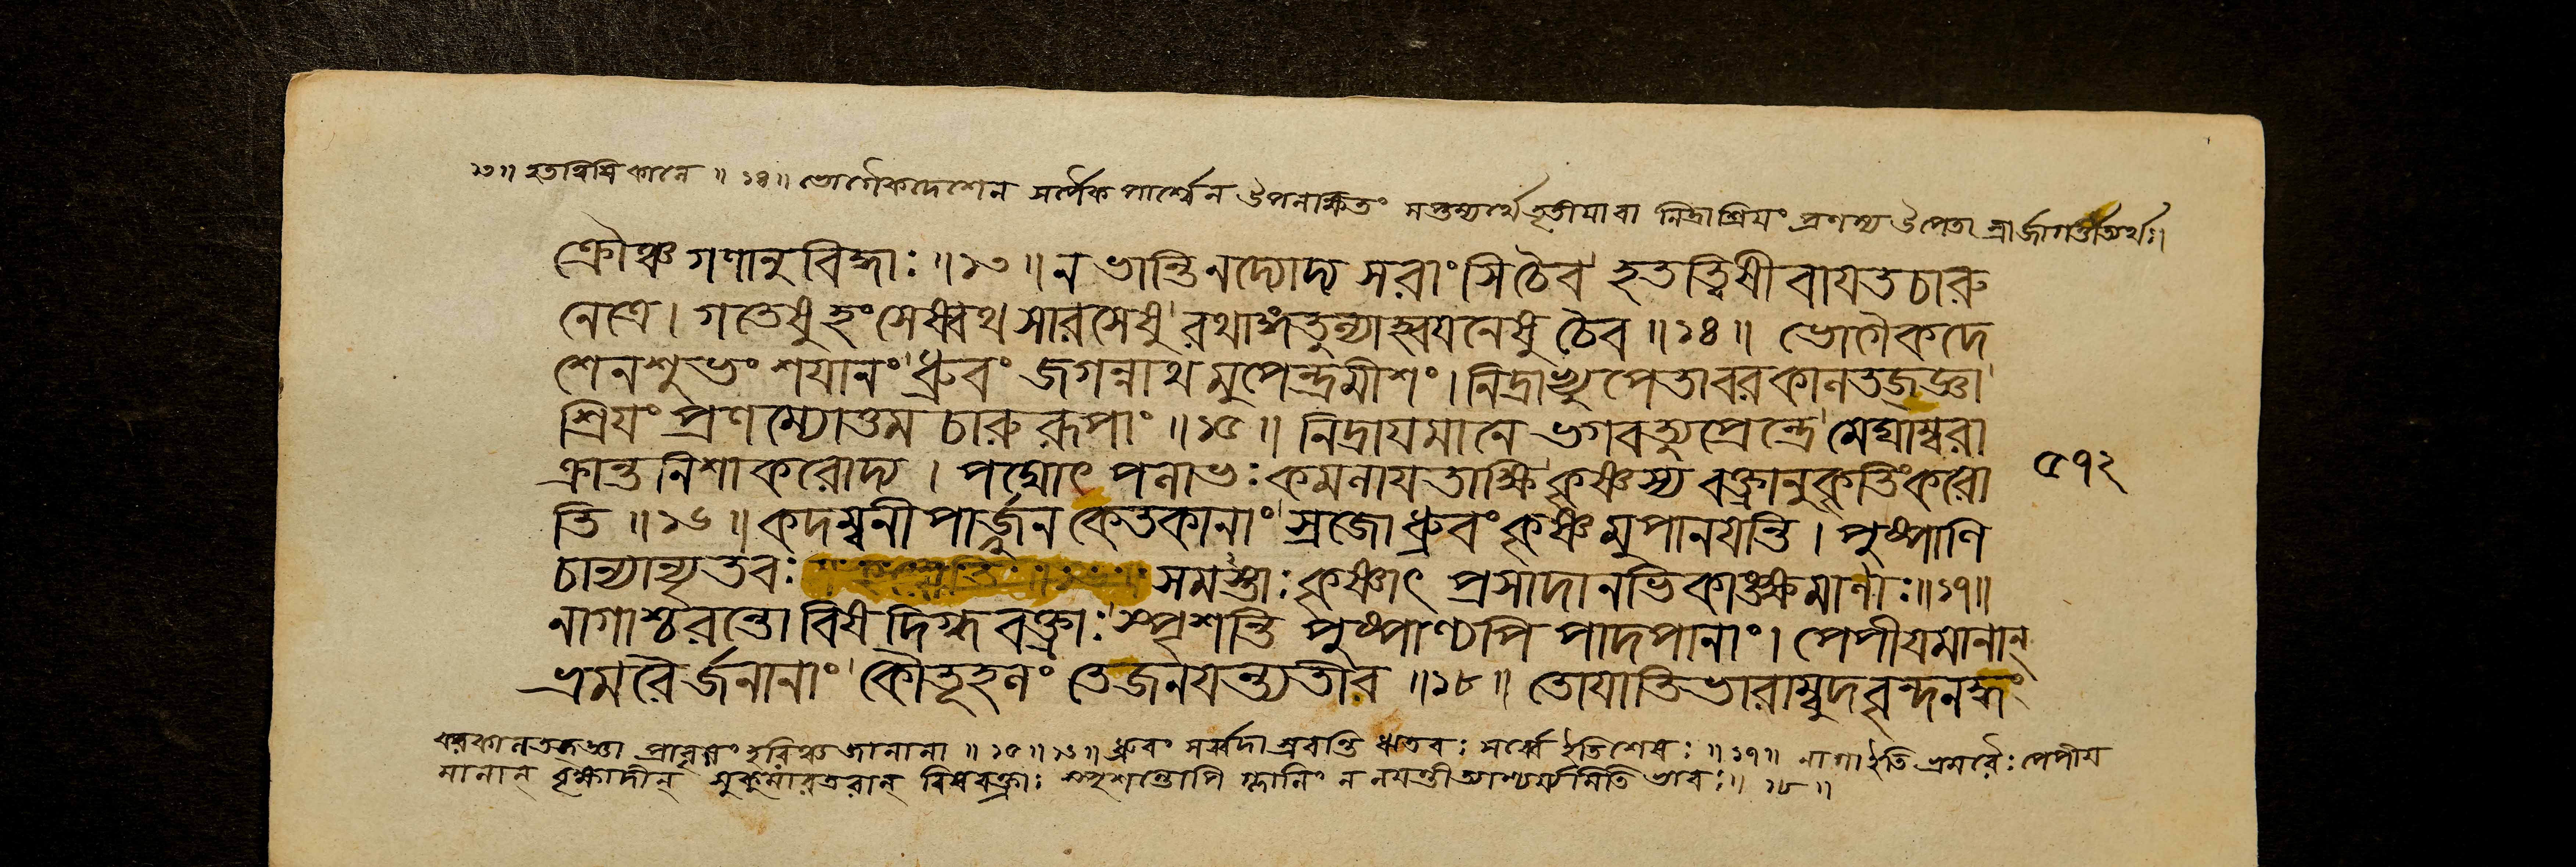 ১৩॥ হৃতাত্বিষি কান্নে ॥ ১৪॥ ভোগৈকদেশেন সর্পৈক পার্শ্বেন উপনাক্ষতং সপ্তম্যর্থে তৃতীয়া বা নিদ্রাশ্রিয়ং প্রণম্য উপেতা প্রার্জাগর্ত্তীত্যর্থঃ।
ক্রৌঞ্চগণানুবিদ্ধাঃ॥১৩॥ন ভান্তি নদ্যোদ্য সরাংসি চৈব হৃতত্বিষীবাযতচারু
নেত্রে। গতেষু হংসেষ্বথ সারসেষু রথাঙ্গতুল্যাহ্বযনেষু চৈব॥১৪॥ ভোগৈকদে
শেনশুভং শযানং ধ্রুবং জগন্নাথমুপেন্দ্রমীশং। নিদ্রাভ্যুপেতাবরকানতজ্ঞা
শ্রিযং প্রণম্যোত্তমচারুরূপাং॥১৫॥ নিদ্রাযমানে ভগবত্যুপেন্দ্রে মেঘাম্বরা
ক্রান্তনিশাকরোদ্য। পদ্মোৎপনাভঃ কমনাযতাক্ষি কৃষ্ণস্য বক্ত্রানুকৃতিংকরো
৫৭২
তি॥১৬॥কদম্বনীপার্জুনকেতকানাং স্রজোধ্রুবং কৃষ্ণমুপানযন্তি। পুষ্পাণি
চান্যান্যৃতবঃ সমস্তাঃ কৃষ্ণাৎ প্রসাদানভিকাঙ্ক্ষমাণাঃ॥১৭॥
নাগাশ্চরন্তো বিষদিগ্ধবক্ত্রাঃ স্পৃশন্তি পুষ্পাণ্যপি পাদপানাং। পেপীযমানান্
ভ্রমরৈর্জনানাং কৌতূহনং তে জনযন্ত্যতীব॥১৮॥ তোযাতিভারাম্বুদবৃন্দনদ্ধং
বরকানতজ্ঞা হরিঞ্চ জানানা ॥ ১৫॥১৬॥ ধ্রুবং সর্ব্বদা স্রবন্তি ঋতবঃ সর্ব্বে ইতিশেষঃ॥১৭॥ নাগা ইতি ভ্রমরৈঃ পেপীয
মানান্ বৃক্ষাদীন্ সুকুমারতরান্ বিষবক্ত্রাঃ স্পৃশন্তোপি গ্লানিং ন নযন্তী আশ্চর্য্যমিতি ভাবঃ॥ ১৮॥